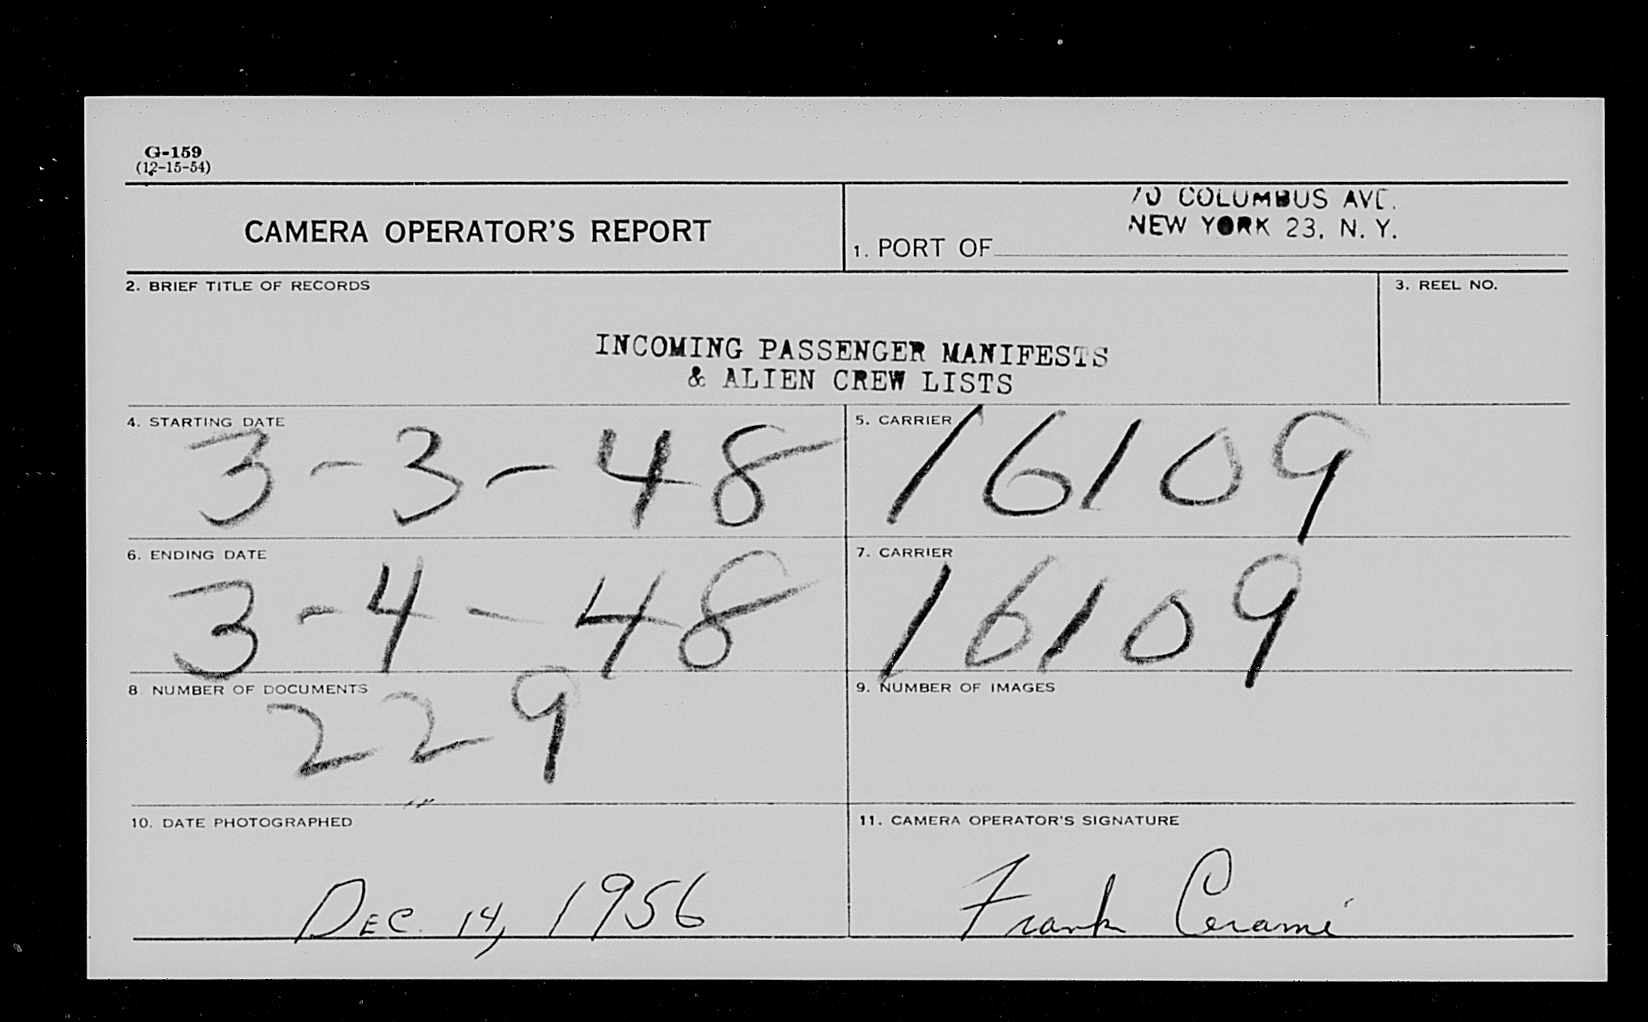 G-159
(12-15-54)
CAMERA OPERATOR'S REPORT
70 COLUMBUS AVE.
NEW YORK 23, N. Y.
1. PORT OF
2. BRIEF TITLE OF RECORDS
3. REEL NO.
INCOMING PASSENGER MANIFESTS
& ALIEN CREW LISTS
4. STARTING DATE
3-3-48
5. CARRIER
16109
6. ENDING DATE
3-4-48
7. CARRIER
16109
8. NUMBER OF DOCUMENTS
229
9. NUMBER OF IMAGES
10. DATE PHOTOGRAPHED
DEC. 14, 1956
11. CAMERA OPERATOR'S SIGNATURE
Frank Cerami